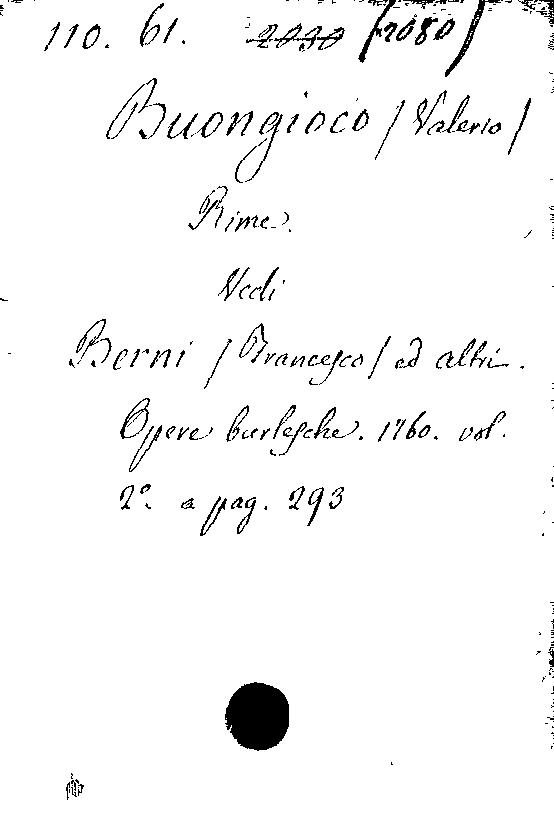 110. 61. 2030 (2080)
Buongioco (Valerio)
Rime.
Vedi
Berni (Francesco) ed altri.
Opere burlesche. 1760. vol.
2º. a pag. 293